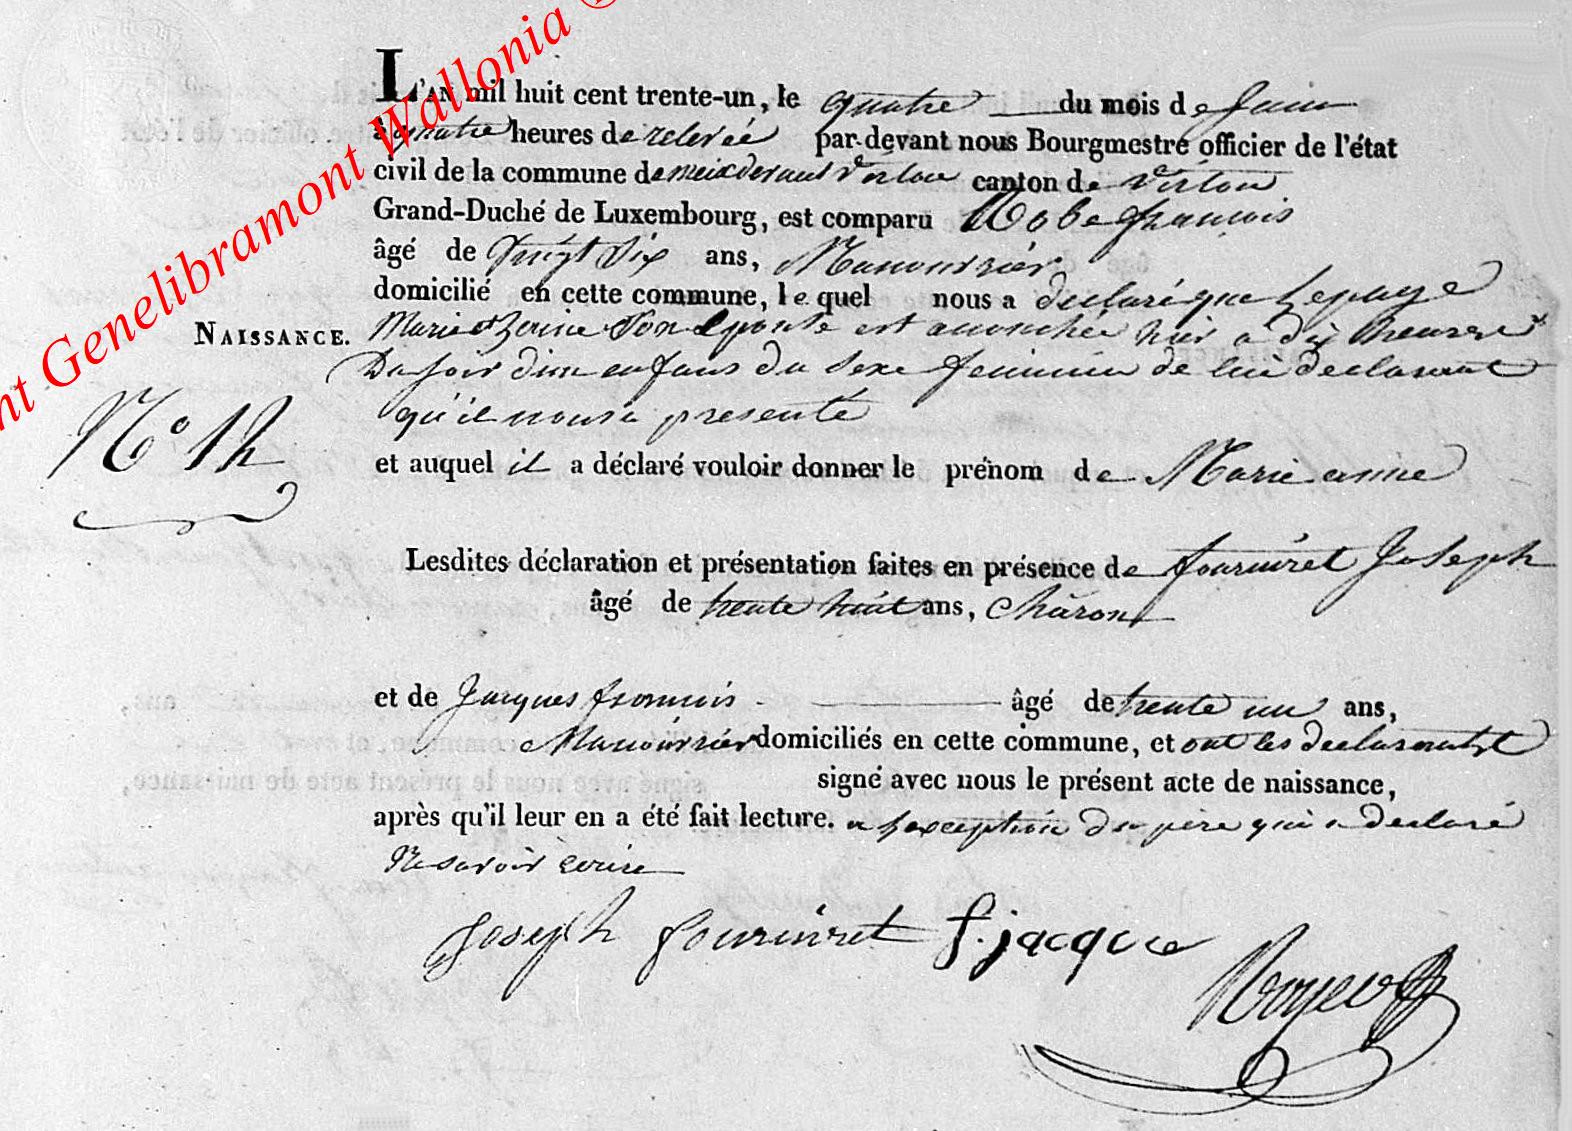 nt Genelibramont Wallonia ©
L'AN mil huit cent trente-un, le quatre du mois de Juin
à quatre heures de relevée par-devant nous Bourgmestre officier de l'état
civil de la commune de meix devant Virton canton de Virton
Grand-Duché de Luxembourg, est comparu françois
âgé de Vingt Six ans, Manouvrier
domicilié en cette commune, le quel nous a declaré que Lepage
NAISSANCE. Marie Son Epouse est accouchée hier a dix heures
Du soir d'un enfant du Sexe feminin de lui declarant
qu'il nous a presenté
N° 12
et auquel il a déclaré vouloir donner le prénom de Marie anne
Lesdites déclaration et présentation faites en présence de fourniret Joseph
âgé de trente huit ans, Charon
et de Jacques francois âgé de trente un ans,
Manouvrier domiciliés en cette commune, et ont les declarants
signé avec nous le présent acte de naissance,
après qu'il leur en a été fait lecture. a L'exception du père qui a declaré
Ne savoir Ecrire
Joseph fourniret f. jacque